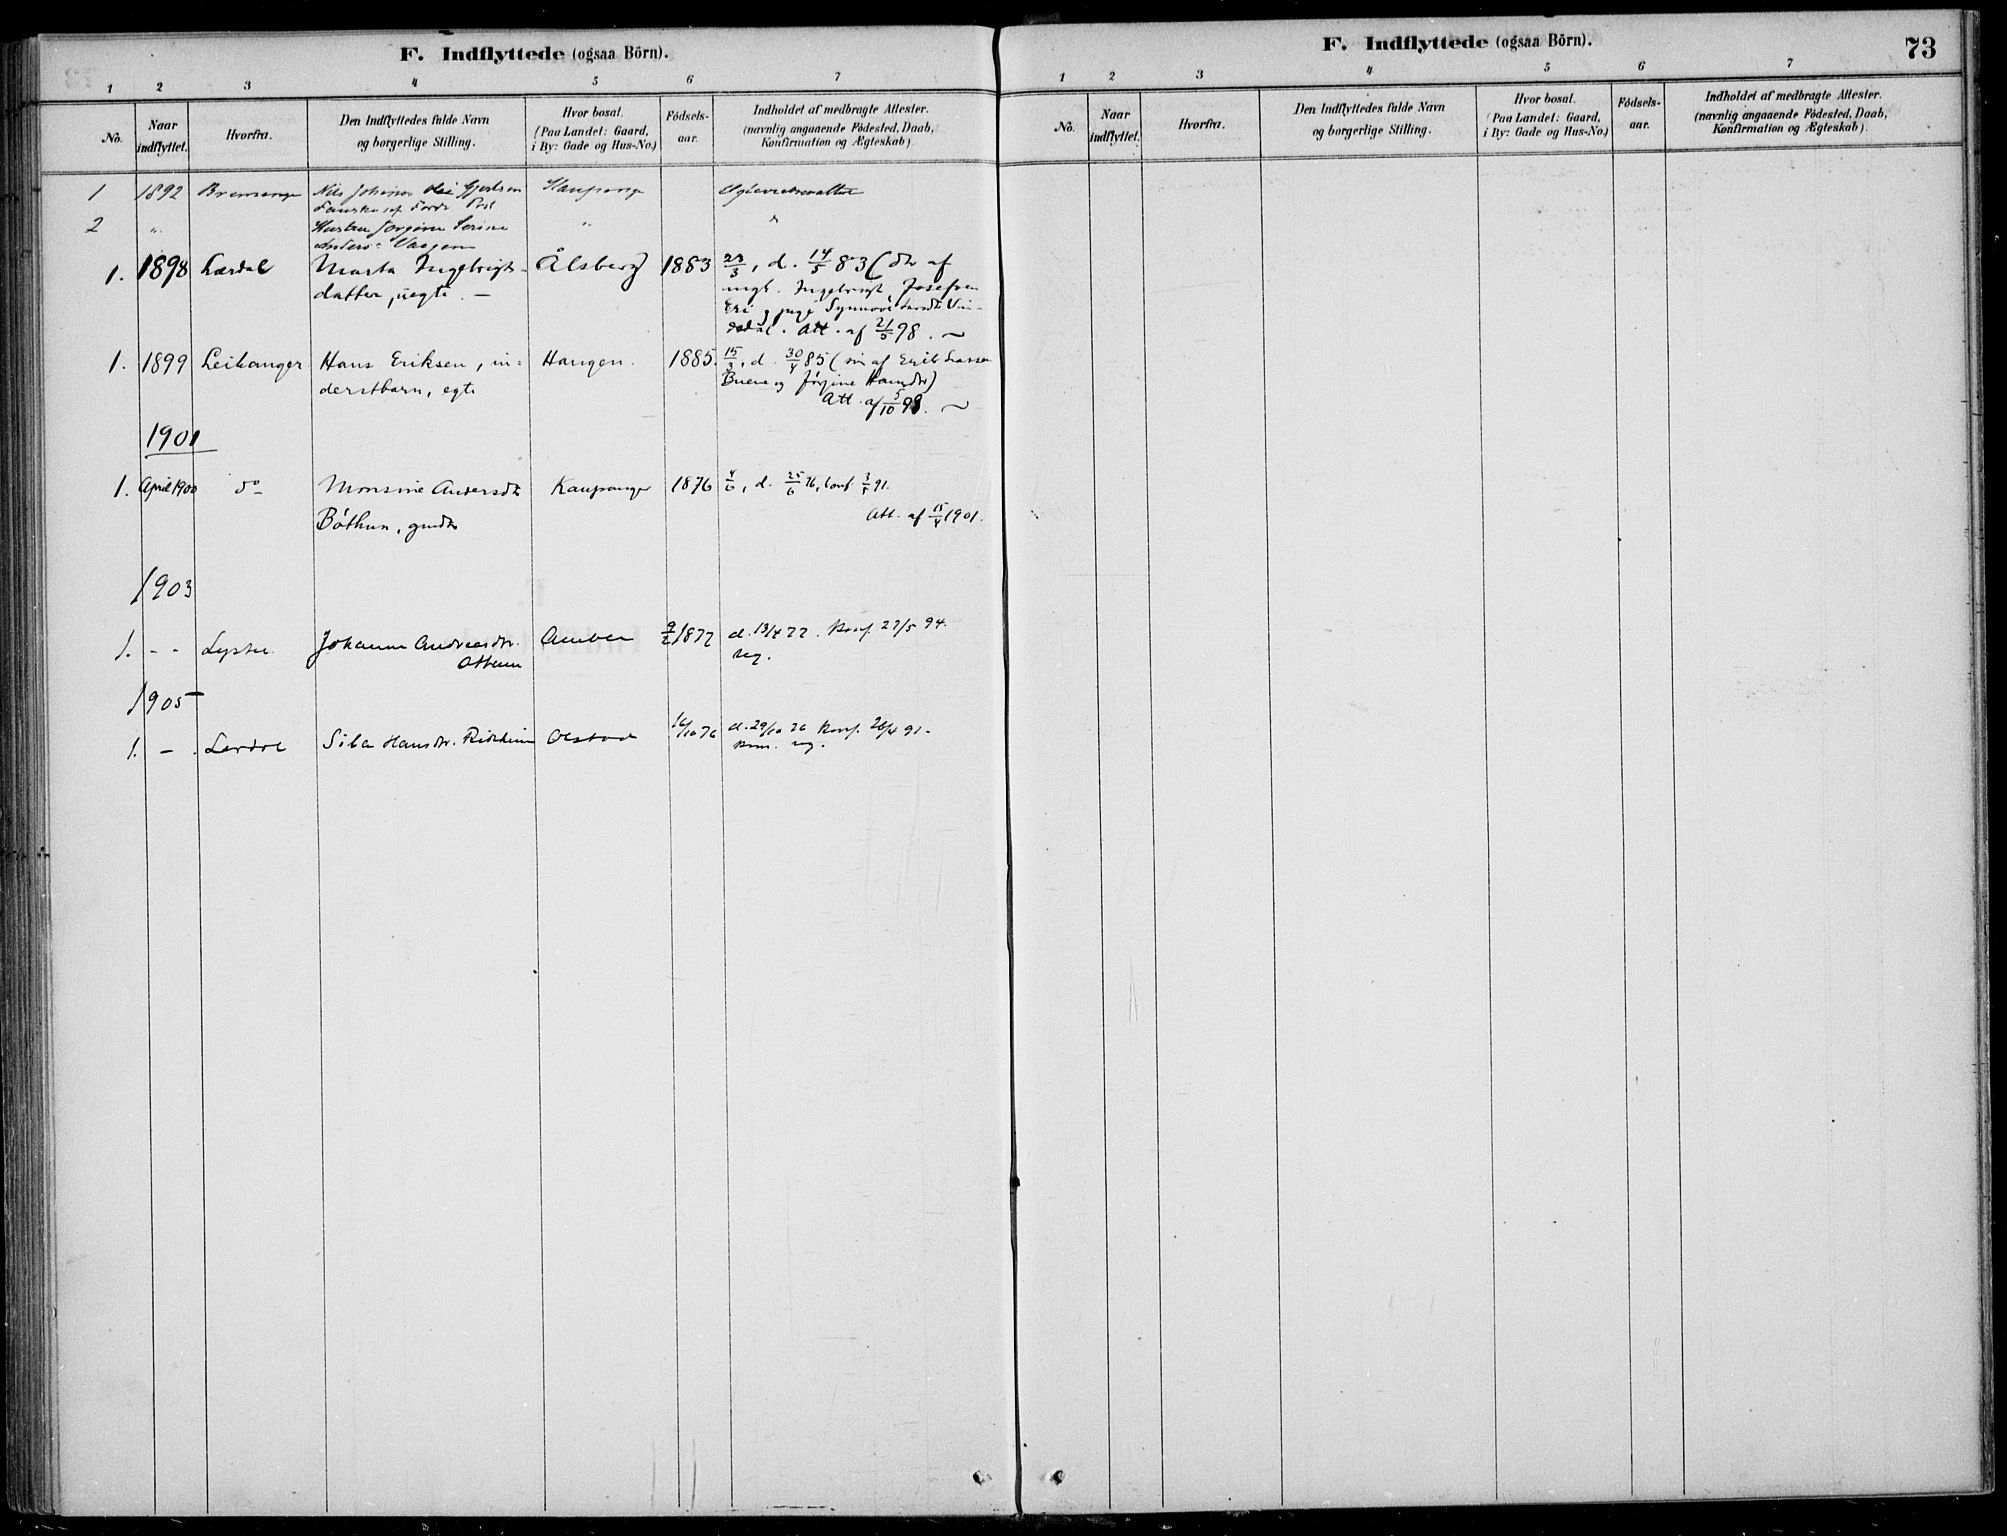 F. Indflyttede (ogsaa Börn).
1 2 3 4 5 6 7
No. Naar indflyttet. Hvorfra. Den Indflyttedes fulde Navn og borgerlige Stilling. Hvor bosat. (Paa Landet: Gaard, i By: Gade og Hus-No.) Födsels-aar. Indholdet af medbragte Attester. (navnlig angaaende Födested, Daab, Konfirmation og Ægteskab)
1 1892 Bremanger Nils Johannes Gjertsen Kaupanger
2 " Hustru Jørgine Serine " "
Anders-
1. 1898 Lærdal Marta Ingebrigts- Ålsberg 1883 23/3, d. 14/5 83 (dtr af
datter, uegte. — ungk. Ingebrigt Josefsen
Eri og pige Synnøve
Att. af 21/5 98.
1. 1899 Leikanger Hans Eriksen, in- Haugen. 1885. 15/3, d. 30/4 85 (søn af Erik Lassen
derstbarn, egte og Jørgine Hansdtr)
Att. af 5/10 98.
1901
1. April 1900 do Monsine Andersdtr Kaupanger 1876 4/6, d. 25/6 76, konf. 91.
Bøthun, gmdtr Att. af 15/4 1901.
1903
1. - - Lyster Johanne Andreasdtr. Amben 9/2 1877 d. 13/4 77. Konf. 27/5 94.
ug.
1905
1. — Lerdal Sila Hansdtr. Olstad 16/10 76 d. 29/10 76 Konf. 26/4 91.
ug.
F. Indflyttede (ogsaa Börn).
73
1 2 3 4 5 6 7
No. Naar indflyttet. Hvorfra. Den Indflyttedes fulde Navn og borgerlige Stilling. Hvor bosat. (Paa Landet: Gaard, i By: Gade og Hus-No.) Födsels-aar. Indholdet af medbragte Attester. (navnlig angaaende Födested, Daab, Konfirmation og Ægteskab)